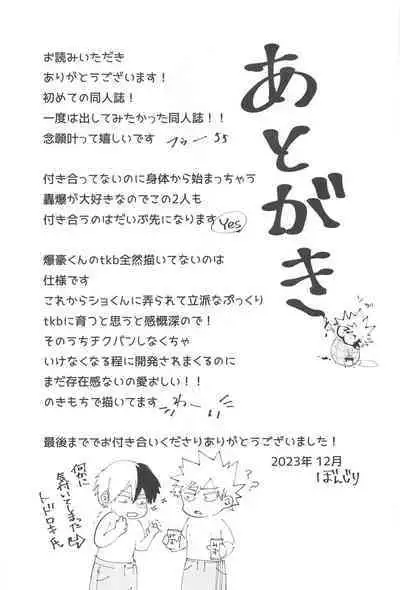 あとがき
お読みいただき
ありがとうございます！
初めての同人誌！
一度は出してみたかった同人誌！！
念願叶って嬉しいです
付き合ってないのに身体から始まっちゃう
轟爆が大好きなのでこの2人も
付き合うのはだいぶ先になります Yes
爆豪くんのtkb全然描いてないのは
仕様です
これからショくんに弄られて立派なぷっくり
tkbに育つと思うと感慨深ので！
そのうちチクバンしなくちゃ
いけなくなる程に開発されまくるのに
まだ存在感ないの愛おしい！！
のきもちで描いてます
最後まででお付き合いくださりありがとうございました！
2023年 12月
ぼんじり
何かに
気付いてしまった
トドロキ氏